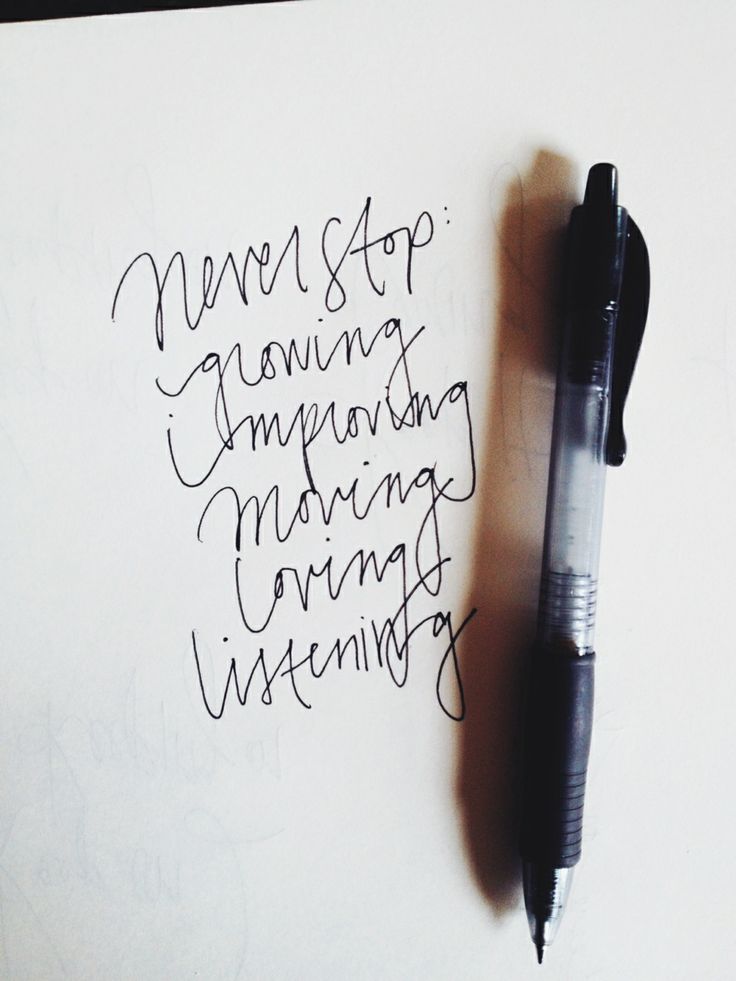 never stop:
growing
improving
moving
loving
listening